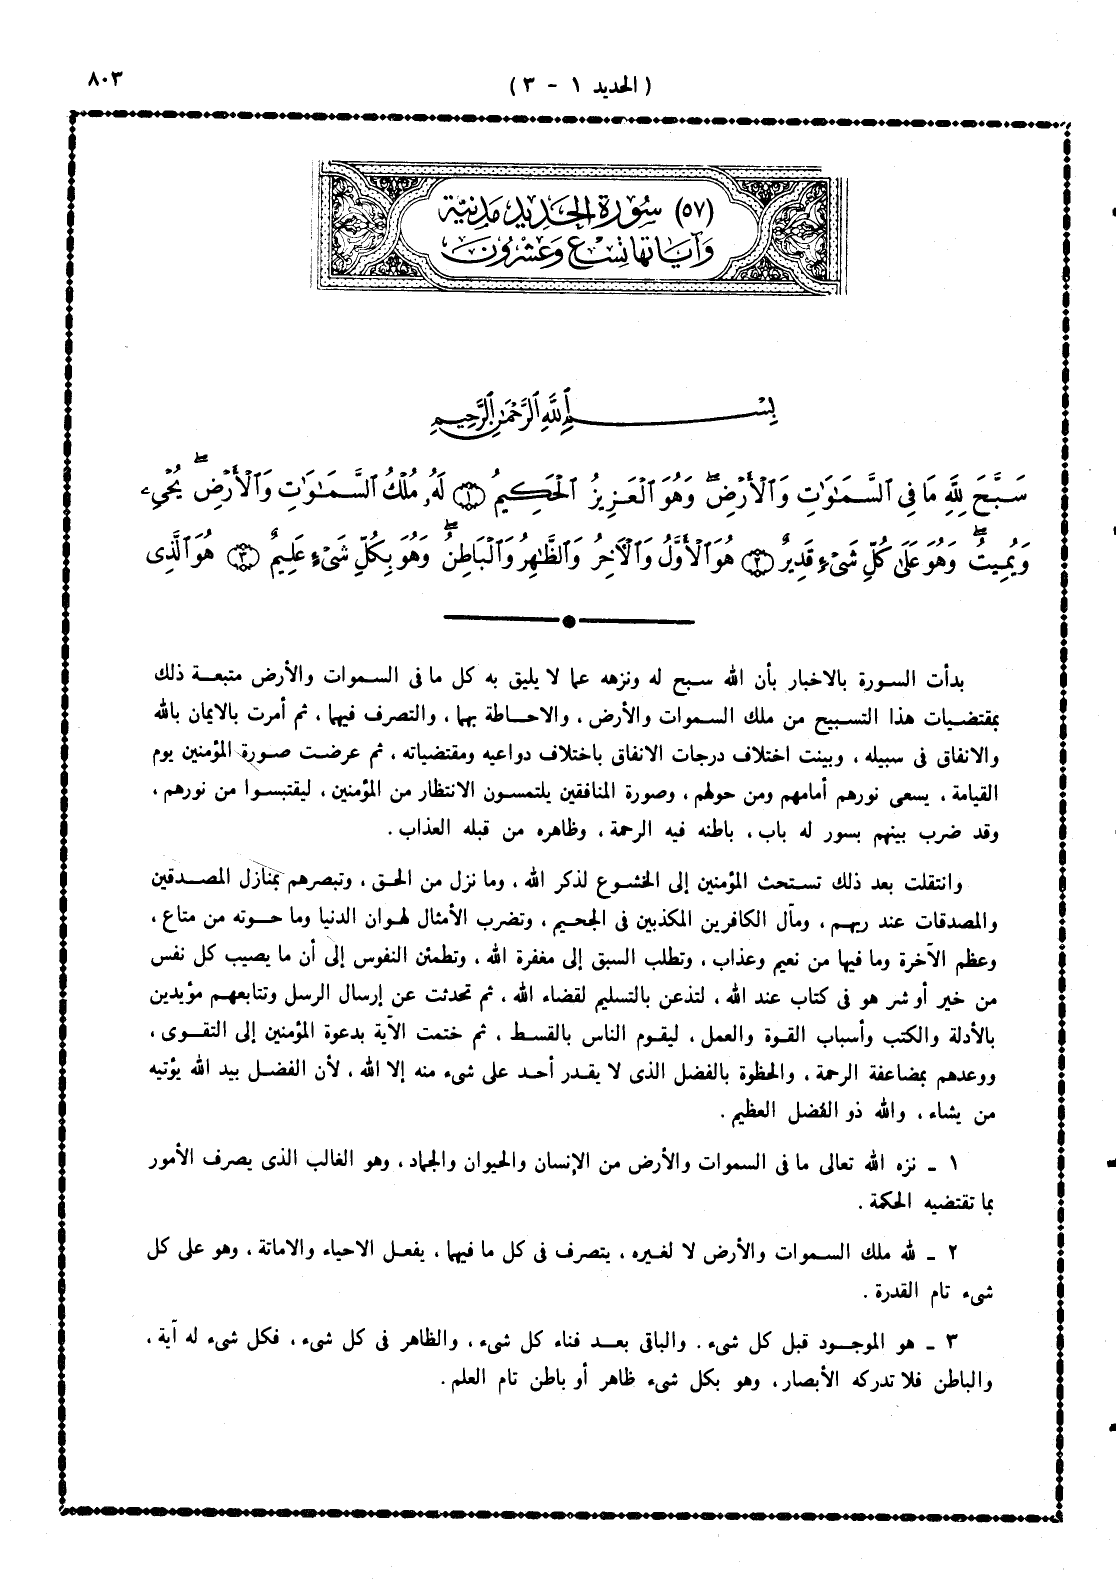 ( الحديد ١ - ٣ )
٨٠٣
(٥٧) سُورَةُ الحَدِيدِ مَدَنِيَّة
وَآيَاتُهَا تِسْعٌ وَعِشْرُونَ
بِسْمِ ٱللَّهِ ٱلرَّحْمَٰنِ ٱلرَّحِيمِ
سَبَّحَ لِلَّهِ مَا فِى ٱلسَّمَٰوَٰتِ وَٱلْأَرْضِۖ وَهُوَ ٱلْعَزِيزُ ٱلْحَكِيمُ ۝١ لَهُۥ مُلْكُ ٱلسَّمَٰوَٰتِ وَٱلْأَرْضِۖ يُحْىِۦ
وَيُمِيتُۖ وَهُوَ عَلَىٰ كُلِّ شَىْءٍ قَدِيرٌ ۝٢ هُوَ ٱلْأَوَّلُ وَٱلْءَاخِرُ وَٱلظَّٰهِرُ وَٱلْبَاطِنُۖ وَهُوَ بِكُلِّ شَىْءٍ عَلِيمٌ ۝٣ هُوَ ٱلَّذِى
بدأت السورة بالاخبار بأن الله سبح له ونزهه عما لا يليق به كل ما فى السموات والأرض متبعة ذلك
بمقتضيات هذا التسبيح من ملك السموات والأرض ، والاحاطة بهما ، والتصرف فيهما ، ثم أمرت بالايمان بالله
والانفاق فى سبيله ، وبينت اختلاف درجات الانفاق باختلاف دواعيه ومقتضياته ، ثم عرضت صورة المؤمنين يوم
القيامة ، يسعى نورهم أمامهم ومن حولهم ، وصورة المنافقين يلتمسون الانتظار من المؤمنين ، ليقتبسوا من نورهم ،
وقد ضرب بينهم بسور له باب ، باطنه فيه الرحمة ، وظاهره من قبله العذاب .
وانتقلت بعد ذلك تستحث المؤمنين إلى الخشوع لذكر الله ، وما نزل من الحق ، وتبصرهم بمنازل المصدقين
والمصدقات عند ربهم ، ومآل الكافرين المكذبين فى الجحيم ، وتضرب الأمثال لهوان الدنيا وما حوته من متاع ،
وعظم الآخرة وما فيها من نعيم وعذاب ، وتطلب السبق إلى مغفرة الله ، وتطمئن النفوس إلى أن ما يصيب كل نفس
من خير أو شر هو فى كتاب عند الله ، لتذعن بالتسليم لقضاء الله ، ثم تحدثت عن إرسال الرسل وتتابعهم مؤيدين
بالأدلة والكتب وأسباب القوة والعمل ، ليقوم الناس بالقسط ، ثم ختمت الآية بدعوة المؤمنين إلى التقوى ،
ووعدهم بمضاعفة الرحمة ، والحظوة بالفضل الذى لا يقدر أحد على شىء منه إلا الله ، لأن الفضل بيد الله يؤتيه
من يشاء ، والله ذو الفضل العظيم .
١ ـ نزه الله تعالى ما فى السموات والأرض من الإنسان والحيوان والجماد ، وهو الغالب الذى يصرف الأمور
بما تقتضيه الحكمة .
٢ ـ لله ملك السموات والأرض لا لغيره ، يتصرف فى كل ما فيهما ، يفعل الاحياء والاماتة ، وهو على كل
شىء تام القدرة .
٣ ـ هو الموجود قبل كل شىء . والباقى بعد فناء كل شىء ، والظاهر فى كل شىء ، فكل شىء له آية ،
والباطن فلا تدركه الأبصار ، وهو بكل شىء ظاهر أو باطن تام العلم .